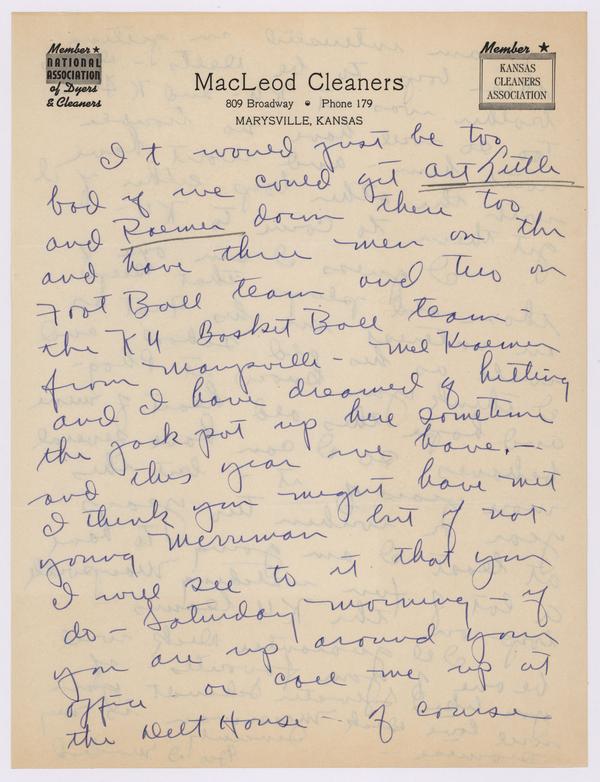 Member ★
NATIONAL
ASSOCIATION
of Dyers
& Cleaners
Member ★
KANSAS
CLEANERS
ASSOCIATION
MacLeod Cleaners
809 Broadway • Phone 179
MARYSVILLE, KANSAS
It would just be too
bad if we could get Art Little
and Roemer down there too
and have three men on the
Foot Ball team and two on
the KU Basket Ball team -
from Marysville - Mel Kraemer
and I have dreamed of hitting
the jack pot up here sometime
and this year we have. -
I think you might have met
young Merriman but if not
I will see to it that you
do - Saturday morning - if
you are up around your
office or call me up at
the Delt House - of course